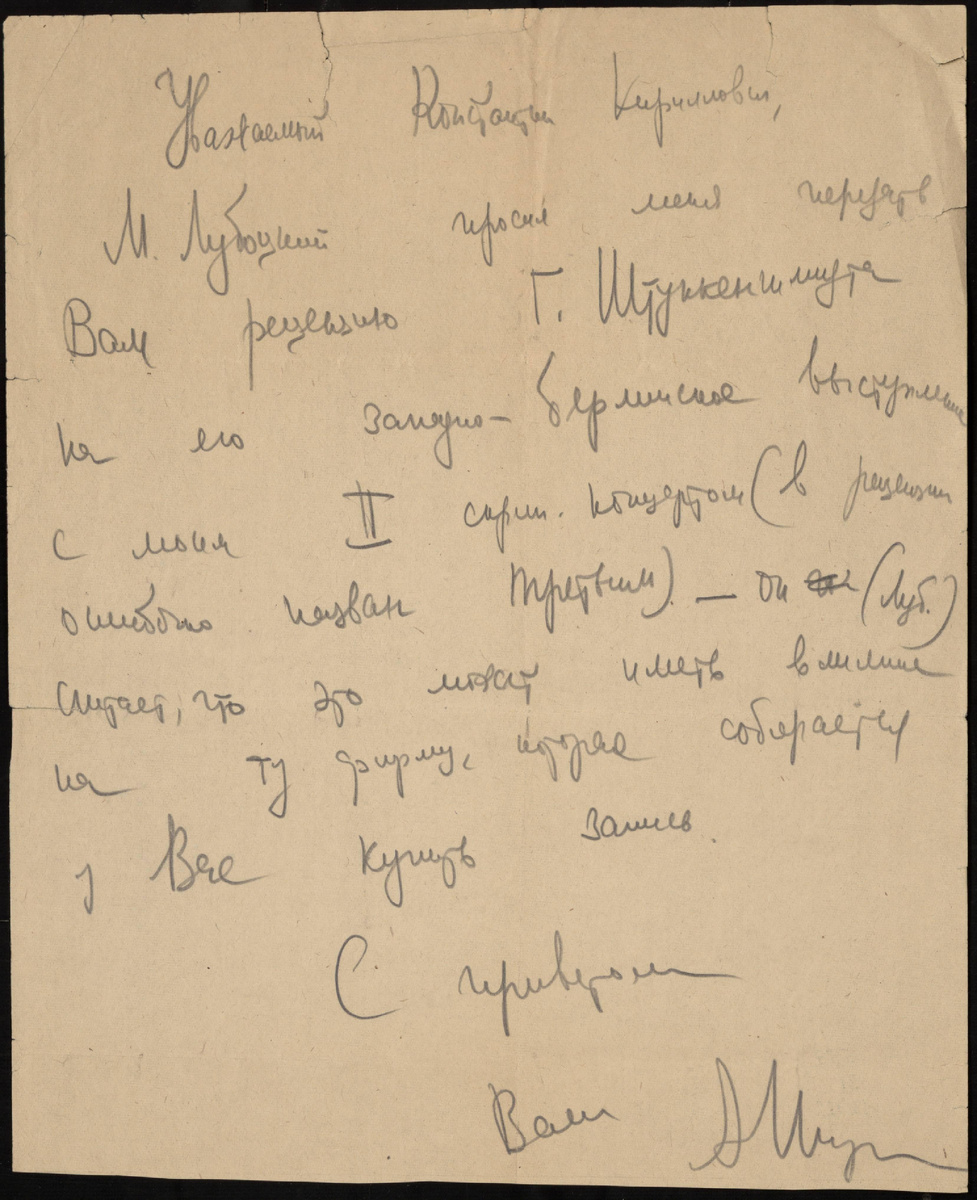 Уважаемый Константин Кириллович,
М. Лубоцкий просил меня передать
Вам рецензию Г. Штуккеншмидта
на его западно-берлинское выступление
с моим II скрип. концертом (в рецензии
ошибочно назван третьим) — он (Луб.)
считает, что это может иметь влияние
на ту фирму, которая собирается
у Вас купить запись.
С приветом
Ваш АШнур